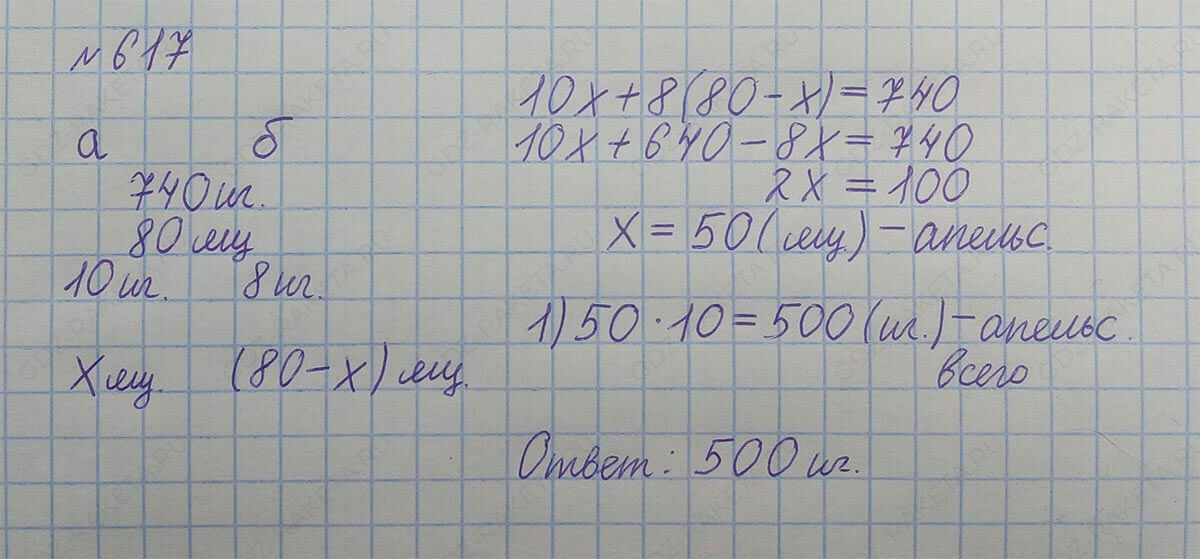 № 617
а б
740 шт.
80 ящ
10 шт. 8 шт.
х ящ. (80-х) ящ.
10х+8(80-х)=740
10х+640-8х=740
2х=100
х=50(ящ)-апельс.
1) 50·10=500(шт.)-апельс.
всего
Ответ: 500 шт.